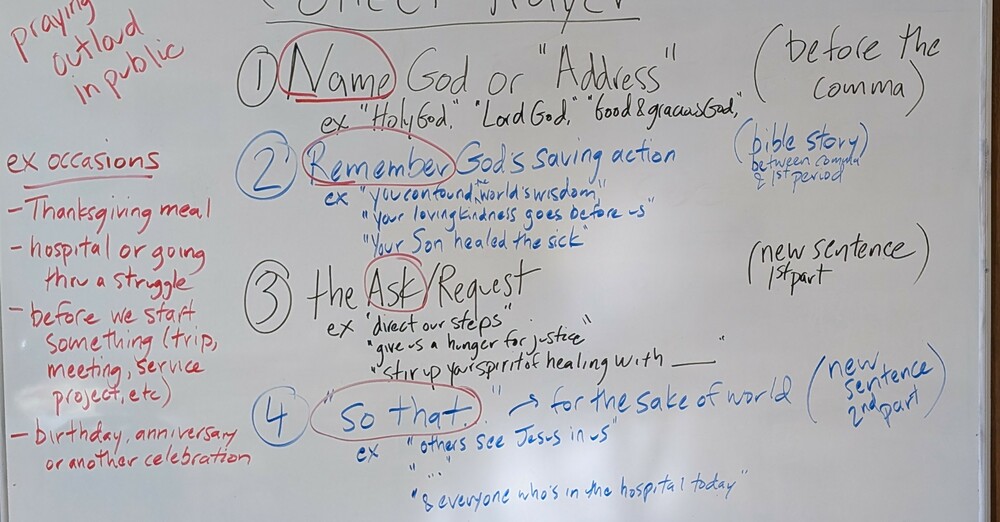 Prayer
praying
outloud
in public
ex occasions
- Thanksgiving meal
- hospital or going
thru a struggle
- before we start
something (trip,
meeting, service
project, etc)
- birthday, anniversary
or another celebration
① Name God or "Address"
(before the
comma)
ex "Holy God," "Lord God," "Good & gracious God,"
② Remember God's saving action
(bible story)
between comma
& 1st period
ex "you confound the world's wisdom,"
"your lovingkindness goes before us"
"Your Son healed the sick"
③ the Ask/Request
(new sentence)
1st part
ex "direct our steps"
"give us a hunger for justice"
"stir up your spirit of healing with ____"
④ "so that..." → for the sake of world
(new
sentence
2nd part)
ex "others see Jesus in us"
"..."
"& everyone who's in the hospital today"